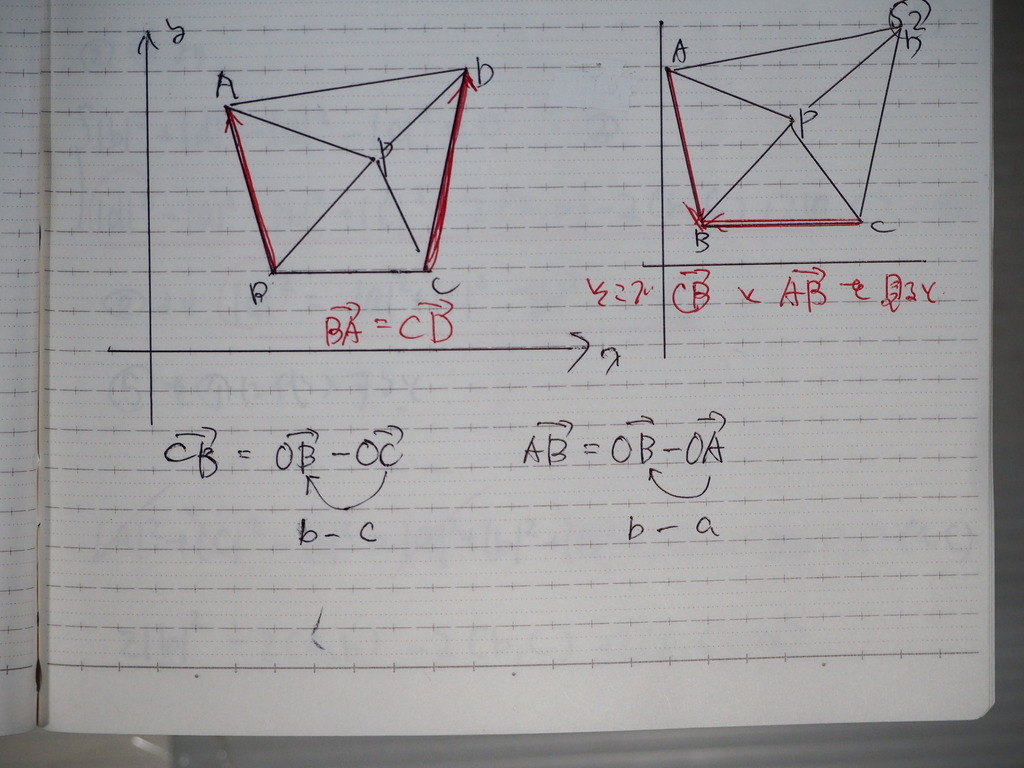 y
A
D
P
B
C
BA = CD
x
A
D
P
B
C
CB と AB を
CB = OB - OC
b - c
AB = OB - OA
b - a